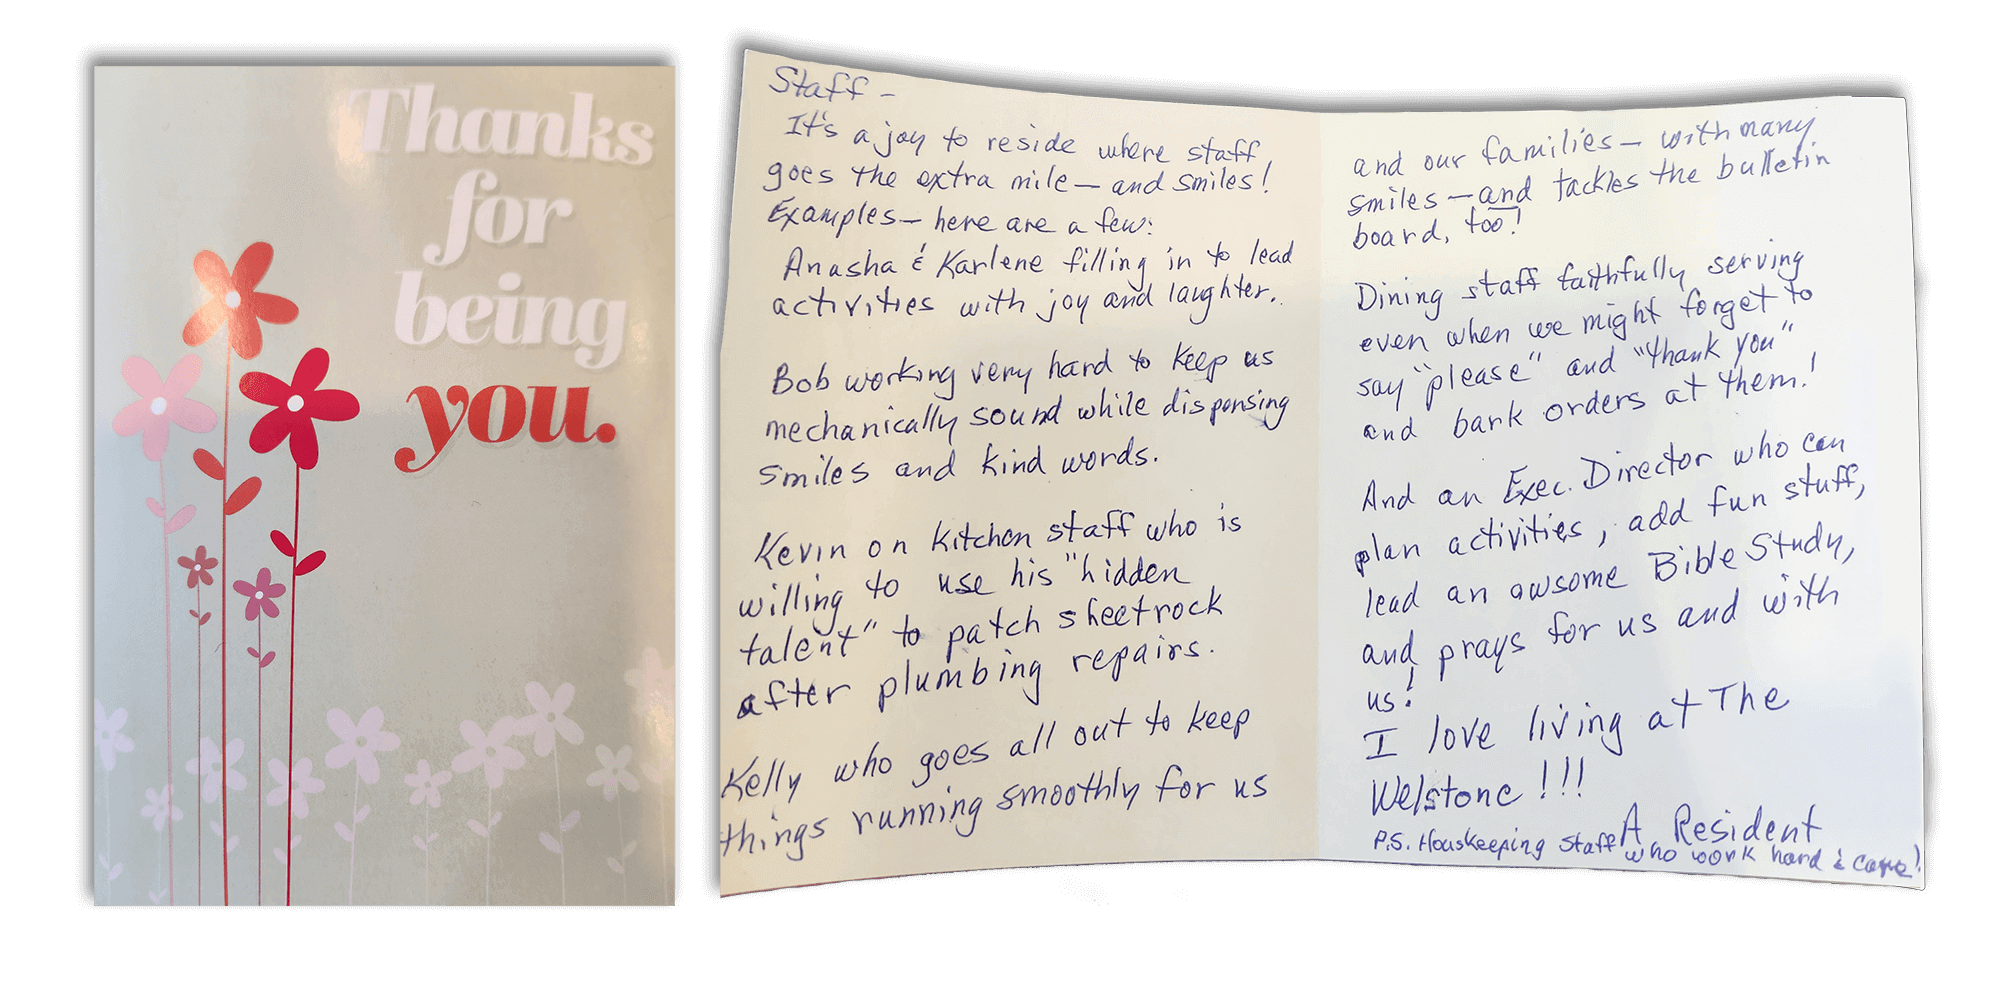 Thanks
for
being
you.
Staff -
It's a joy to reside where staff
goes the extra mile — and smiles!
Examples — here are a few:
Anasha & Karlene filling in to lead
activities with joy and laughter.
Bob working very hard to keep us
mechanically sound while dispensing
smiles and kind words.
Kevin on kitchen staff who is
willing to use his "hidden
talent" to patch sheetrock
after plumbing repairs.
Kelly who goes all out to keep
things running smoothly for us
and our families — with many
smiles — and tackles the bulletin
board, too!
Dining staff faithfully serving
even when we might forget to
say "please" and "thank you"
and bark orders at them!
And an Exec. Director who can
plan activities, add fun stuff,
lead an awsome Bible Study,
and prays for us and with
us!
I love living at The
Welstone!!!
A Resident
P.S. Houskeeping Staff
who work hard & care!